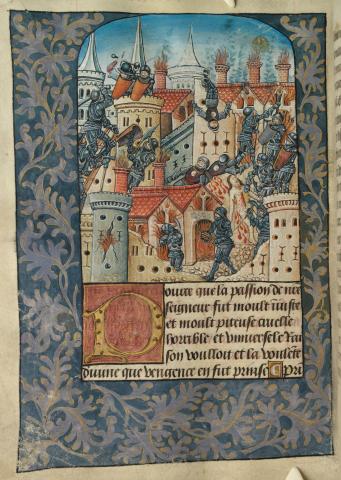 Pource que la passion de nre
seigneur fut moult iniuste
et moult piteuse cruelle
horrible et universele rai
son voulloit et la voulete
divine que vengence en fut prinse Pri